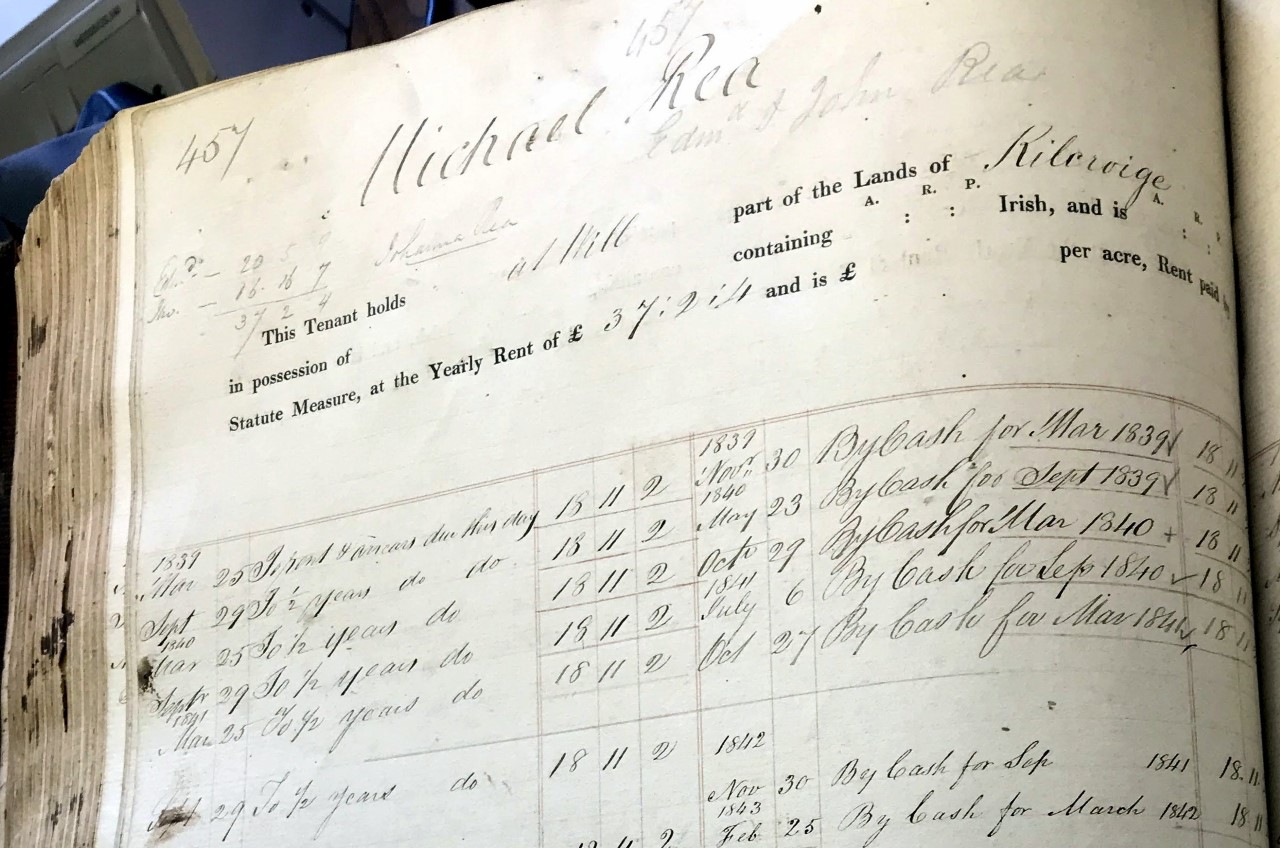 457
457
Michael Rea
Edmd & John Rea
Johanna Rea
Edmd. — 20 5 9
Jno. — 16 16 7
37 2 4
This Tenant holds at Will part of the Lands of Kilcroige
in possession of containing A. R. P. : : Irish, and is A. R. P : :
Statute Measure, at the Yearly Rent of £ 37:2:4 and is £ per acre, Rent paid
1839
Mar 25 To rent & arrears due this day 18 11 2
Sept 29 To ½ years do do 18 11 2
1840
Mar 25 To ½ years do 18 11 2
Septr 29 To ½ years do 18 11 2
1841
Mar 25 To ½ years do 18 11 2
29 To ½ years do 18 11 2
11 2
1839
Novr 30 By Cash for Mar 1839 18 11
1840
May 23 By Cash for Sept 1839 18 11
Octr 29 By Cash for Mar 1840 + 18 11
1841
July 6 By Cash for Sep 1840 18 11
Oct 27 By Cash for Mar 1841 18 11
1842
Nov 30 By Cash for Sep 1841 18. 11
1843
Feb 25 By Cash for March 1842 18 11